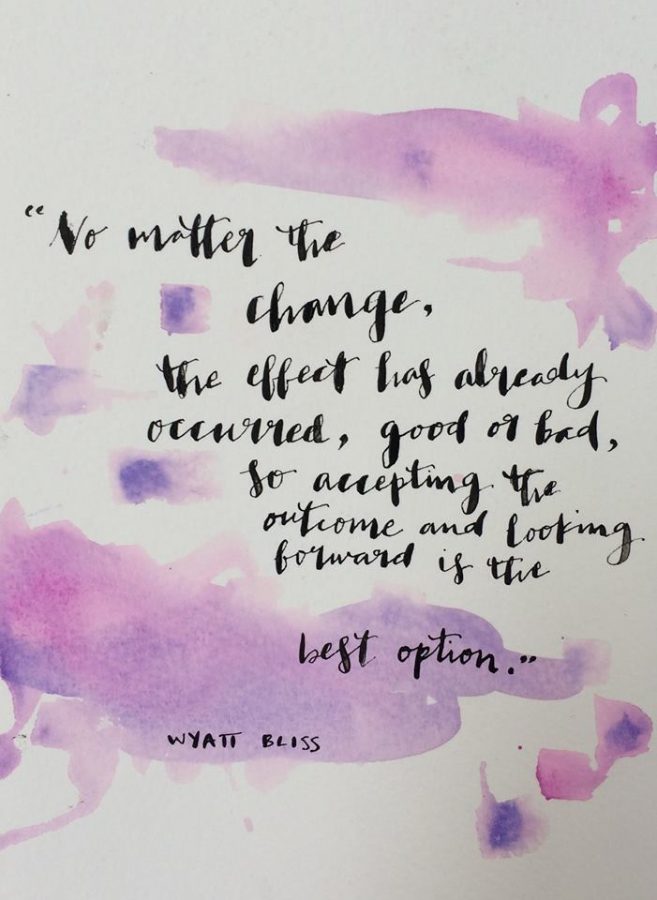 “No matter the
change,
the effect has already
occurred, good or bad,
so accepting the
outcome and looking
forward is the
best option.”
WYATT BLISS